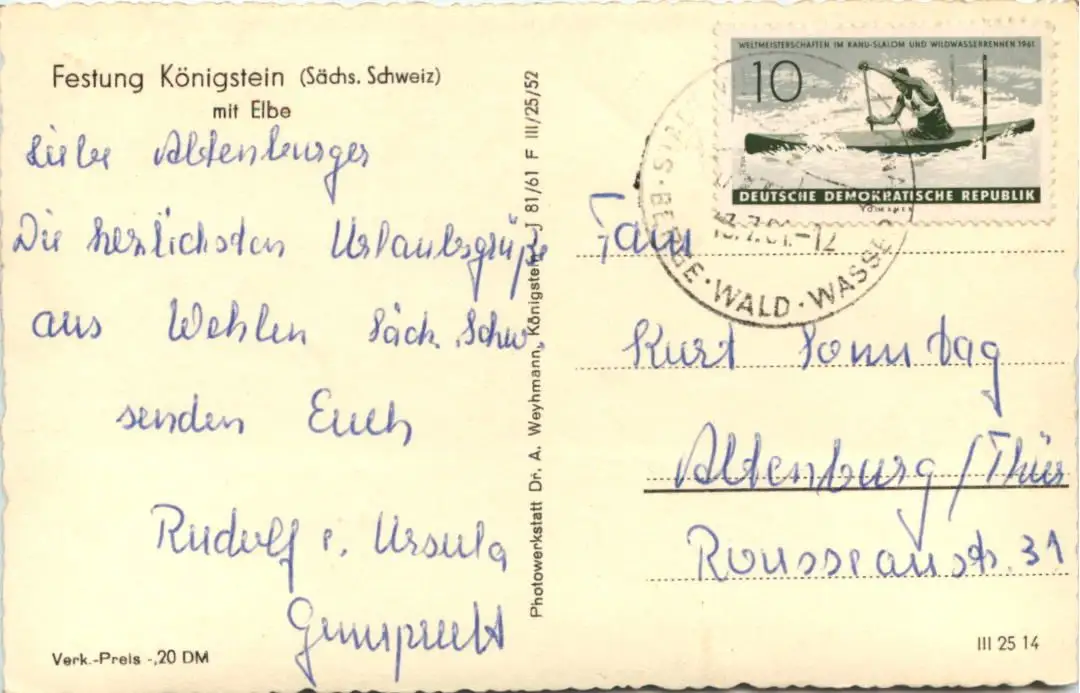 Festung Königstein (Sächs. Schweiz)
mit Elbe
Liebe Altenburger
Die herzlichsten Urlaubsgrüße
aus Wehlen Säch. Schw.
senden Euch
Rudolf u. Ursula
Verk.-Preis -,20 DM
Photowerkstatt Dr. A. Weyhmann, Königstein, J 81/61 F III/25/52
WELTMEISTERSCHAFTEN IM KANU-SLALOM UND WILDWASSERRENNEN 1961
10
DEUTSCHE DEMOKRATISCHE REPUBLIK
BERGE · WALD · WASSER
Fam
Kurt Sonntag
Altenburg/Thür
Rousseaustr. 31
III 25 14